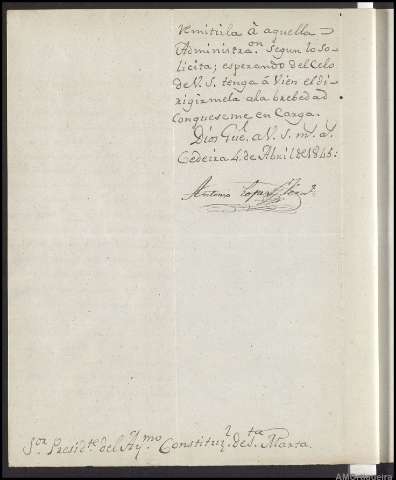 remitirla à aquella
Administra.on segun lo so-
licita; esperando del Celo
de V. S. tenga á vien el di-
rigirmela ala brebedad
conqueseme en Carga.
Dios Gue. a V. S. m.s a.s
Cedeira 4 de Abril de 1845:
Antonio Lopez
Sor. Presidte. del Aymo. Constituzl. de Sta. Marta.
AMOrtigueira